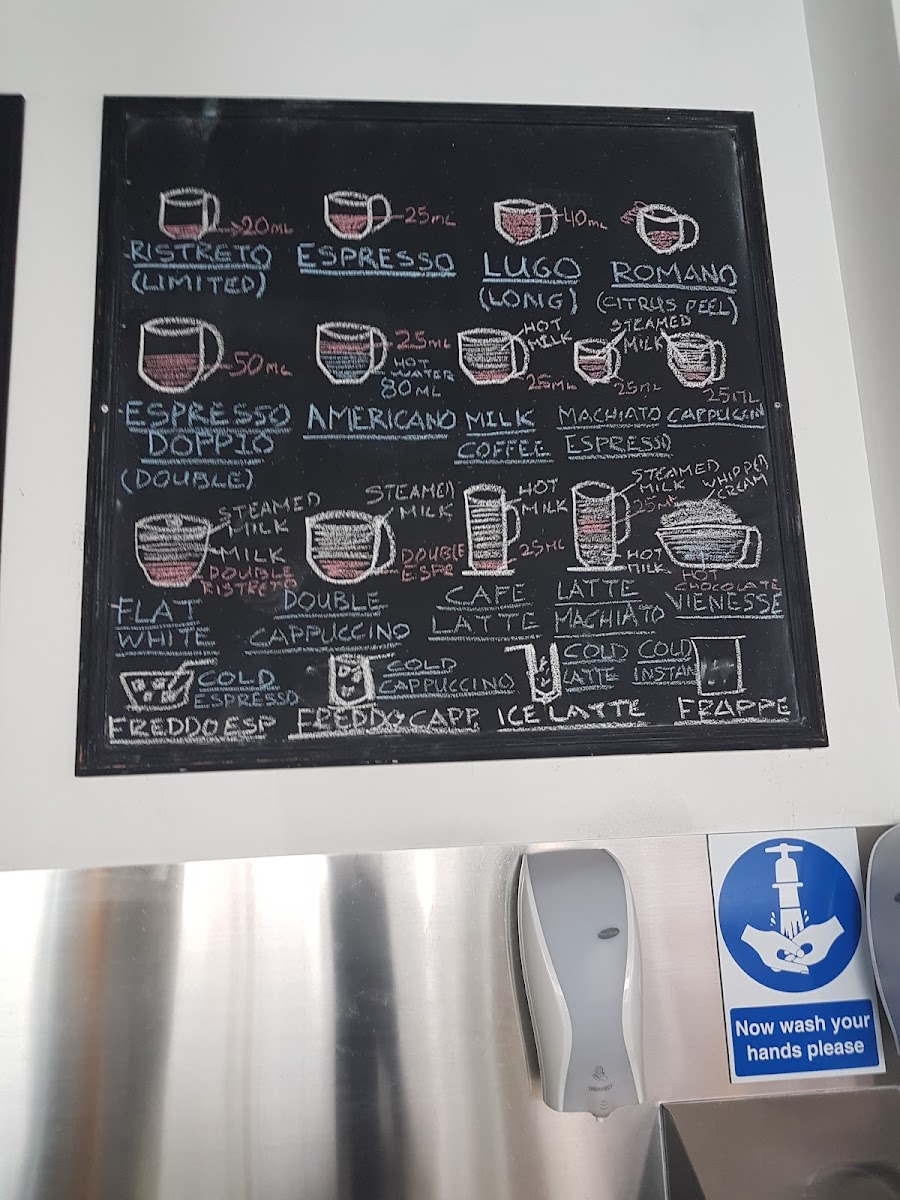 20ML
25ML
40ML
RISTRETO
(LIMITED)
ESPRESSO
LUGO
(LONG)
ROMANO
(CITRUS PEEL)
50ML
25ML
HOT
WATER
80ML
HOT
MILK
25ML
STEAMED
MILK
25ML
25ML
ESPRESSO
DOPPIO
(DOUBLE)
AMERICANO
MILK
COFFEE
MACHIATO
ESPRESSO
CAPPUCCIN
STEAMED
MILK
MILK
DOUBLE
RISTRETO
STEAMED
MILK
DOUBLE
ESPR
HOT
MILK
25ML
STEAMED
MILK
25ML
HOT
MILK
WHIPPED
CREAM
HOT
CHOCOLATE
FLAT
WHITE
DOUBLE
CAPPUCCINO
CAFE
LATTE
LATTE
MACHIATO
VIENESSE
COLD
ESPRESSO
FREDDO ESP
COLD
CAPPUCCINO
FREDDO CAPP
COLD
LATTE
ICE LATTE
COLD
INSTAN
FRAPPE
Now wash your
hands please